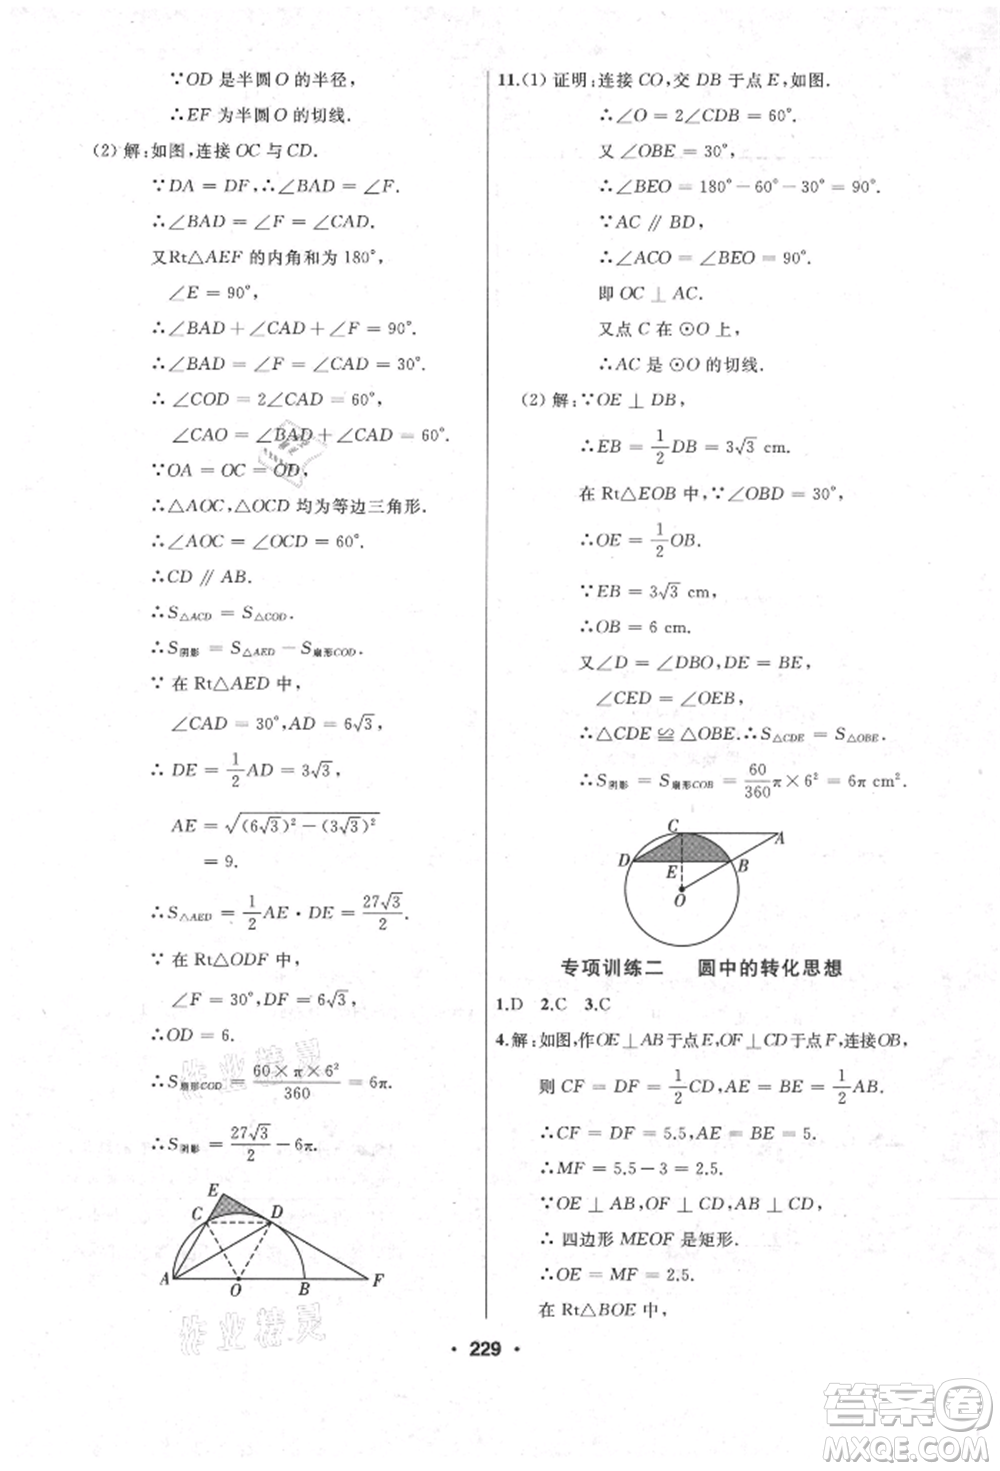 ∵OD 是半圆 O 的半径,
∴EF 为半圆 O 的切线.
(2) 解:如图,连接 OC 与 CD.
∵DA = DF,∴∠BAD = ∠F.
∴∠BAD = ∠F = ∠CAD.
又Rt△AEF 的内角和为 180°,
∠E = 90°,
∴∠BAD + ∠CAD + ∠F = 90°.
∴∠BAD = ∠F = ∠CAD = 30°.
∴ ∠COD = 2∠CAD = 60°,
∠CAO = ∠BAD + ∠CAD = 60°.
∵OA = OC = OD,
∴△AOC,△OCD 均为等边三角形.
∴∠AOC = ∠OCD = 60°.
∴CD ∥ AB.
∴S△ACD = S△COD.
∴S阴影 = S△AED − S扇形COD.
∵ 在 Rt△AED 中,
∠CAD = 30°,AD = 6√3,
∴ DE = 1/2 AD = 3√3,
AE = √((6√3)² − (3√3)²)
= 9.
∴S△AED = 1/2 AE · DE = 27√3/2.
∵ 在 Rt△ODF 中,
∠F = 30°,DF = 6√3,
∴OD = 6.
∴S扇形COD = (60 × π × 6²)/360 = 6π.
∴S阴影 = 27√3/2 − 6π.
E
C D
A O B F
11.(1) 证明:连接 CO,交 DB 于点 E,如图.
∴∠O = 2∠CDB = 60°.
又 ∠OBE = 30°,
∴∠BEO = 180° − 60° − 30° = 90°.
∵AC ∥ BD,
∴∠ACO = ∠BEO = 90°.
即 OC ⊥ AC.
又点 C 在 ⊙O 上,
∴AC 是 ⊙O 的切线.
(2) 解:∵OE ⊥ DB,
∴EB = 1/2 DB = 3√3 cm.
在 Rt△EOB 中,∵∠OBD = 30°,
∴OE = 1/2 OB.
∵EB = 3√3 cm,
∴OB = 6 cm.
又∠D = ∠DBO,DE = BE,
∠CED = ∠OEB,
∴△CDE ≌ △OBE.∴S△CDE = S△OBE.
∴S阴影 = S扇形COB = 60/360 π × 6² = 6π cm².
C A
D E B
O
专项训练二 圆中的转化思想
1.D 2.C 3.C
4.解:如图,作OE⊥AB于点E,OF⊥CD于点F,连接OB,
则 CF = DF = 1/2 CD,AE = BE = 1/2 AB.
∴CF = DF = 5.5,AE = BE = 5.
∴MF = 5.5 − 3 = 2.5.
∵OE ⊥ AB,OF ⊥ CD,AB ⊥ CD,
∴ 四边形 MEOF 是矩形.
∴OE = MF = 2.5.
在 Rt△BOE 中,
· 229 ·
作业精灵
作业精灵
答案卷
MXQE.COM